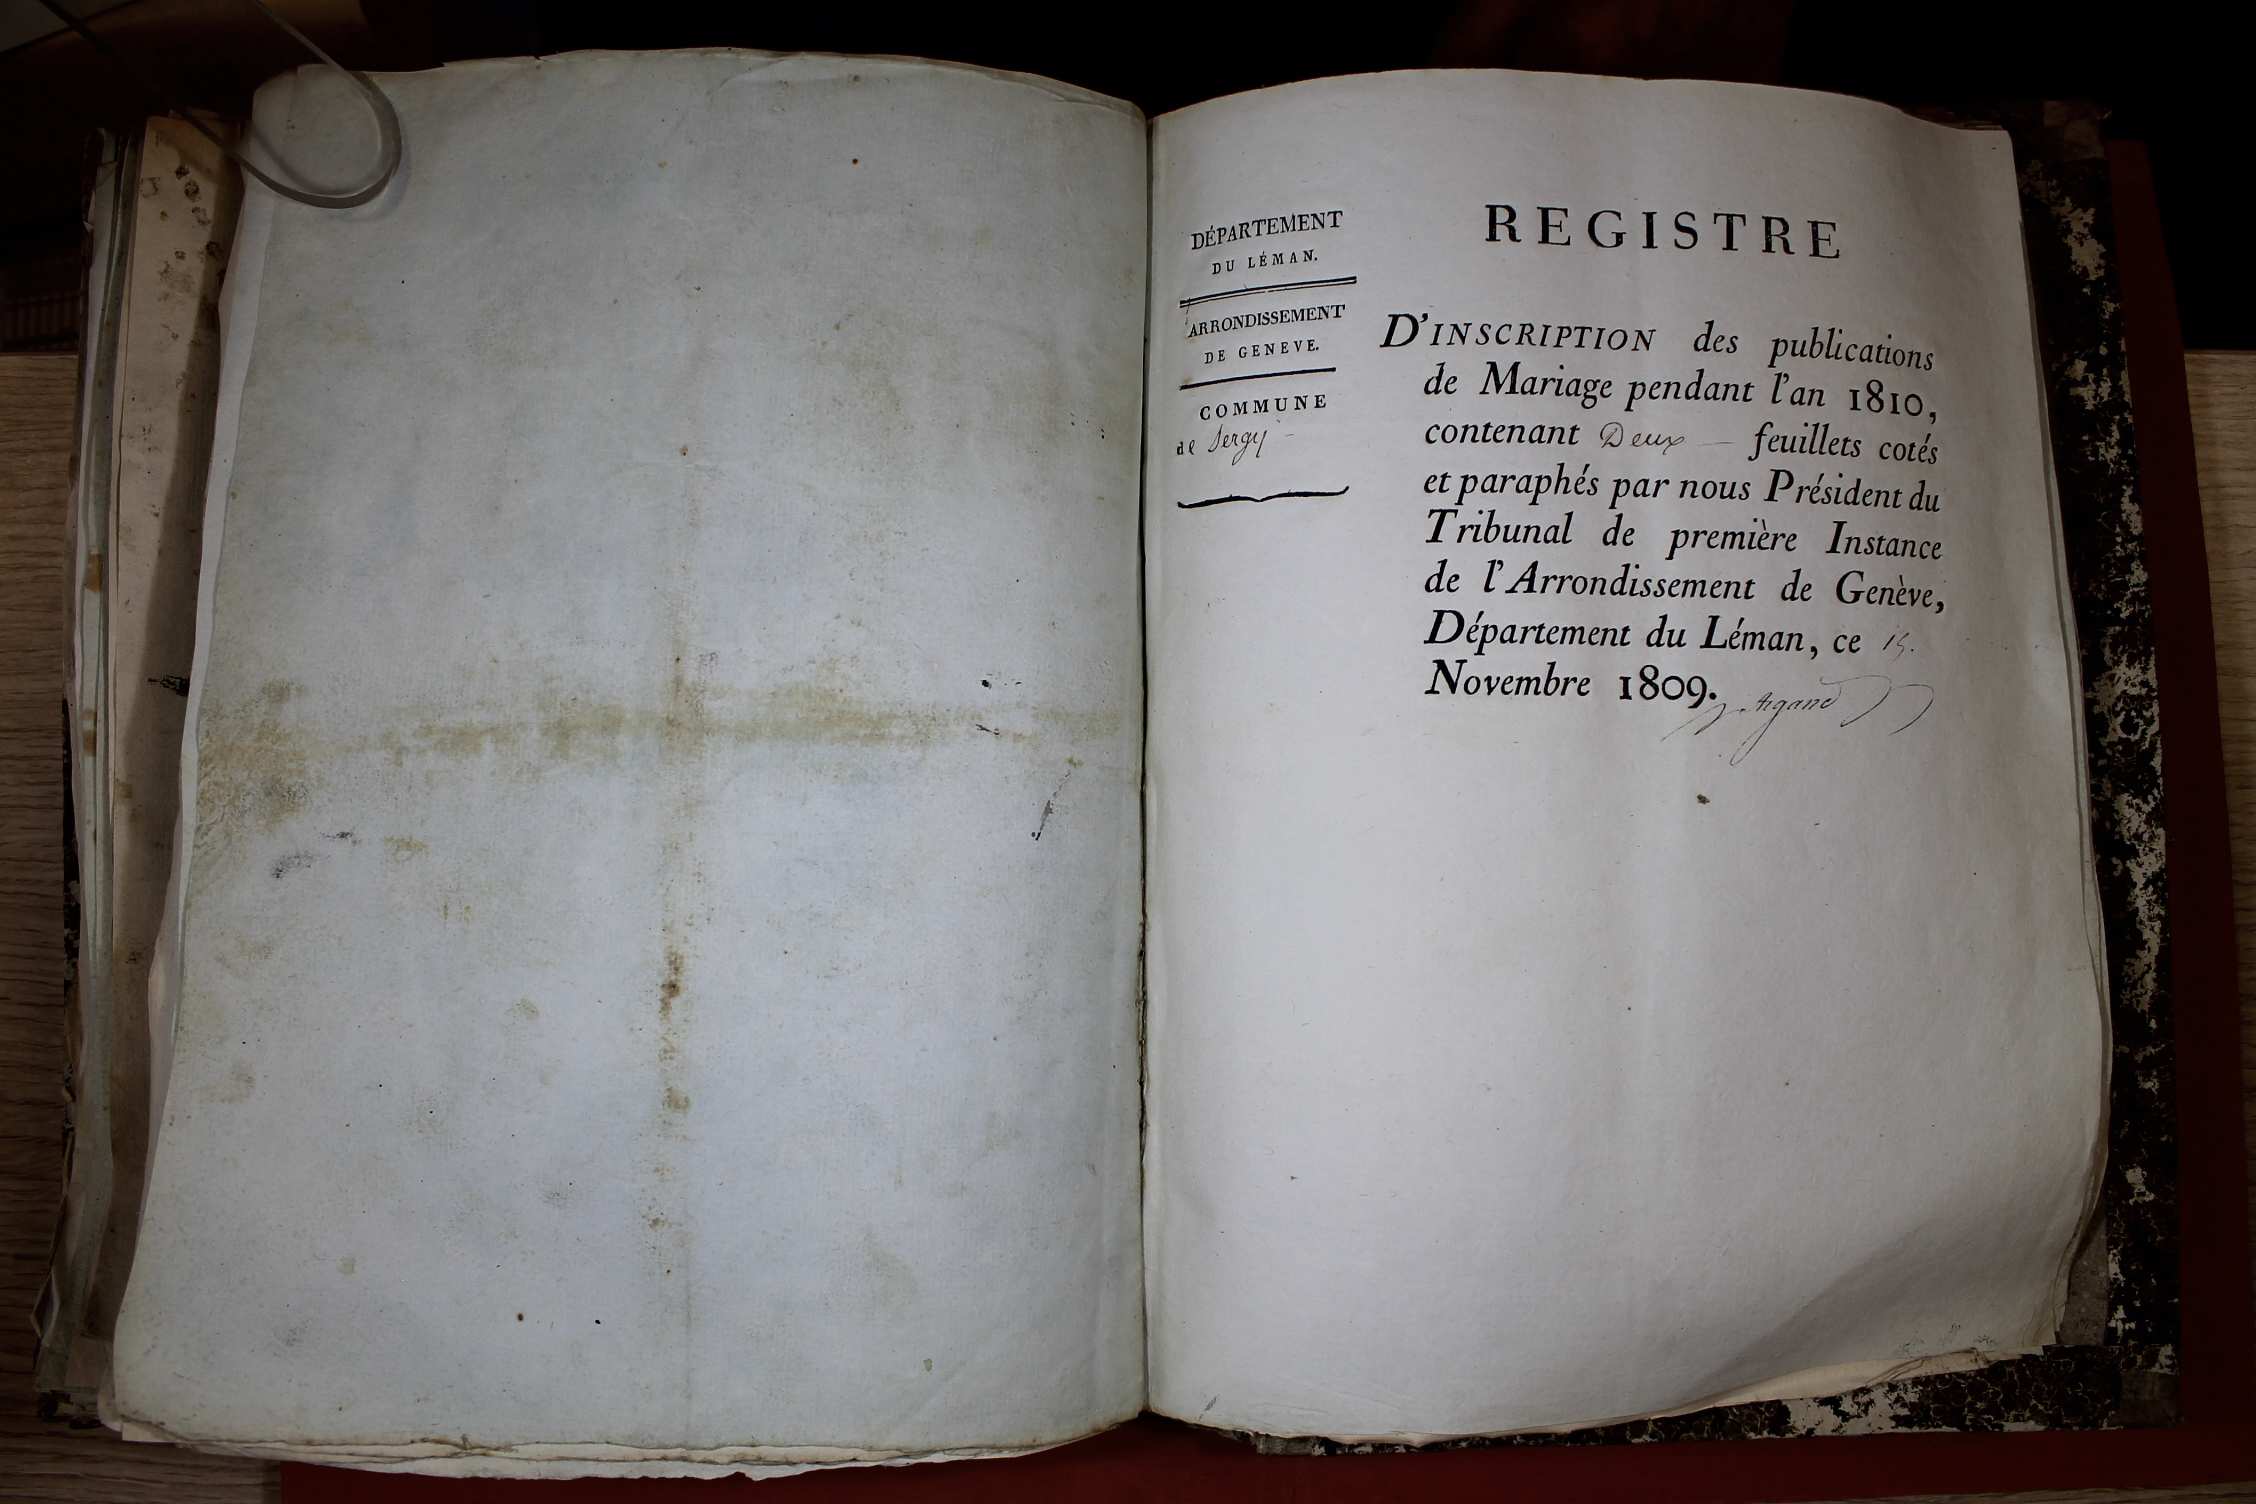 DÉPARTEMENT
DU LÉMAN.
ARRONDISSEMENT
DE GENEVE.
COMMUNE
de Sergy
REGISTRE
D'INSCRIPTION des publications
de Mariage pendant l'an 1810,
contenant Deux feuillets cotés
et paraphés par nous Président du
Tribunal de première Instance
de l'Arrondissement de Genève,
Département du Léman, ce 15.
Novembre 1809.
Argand